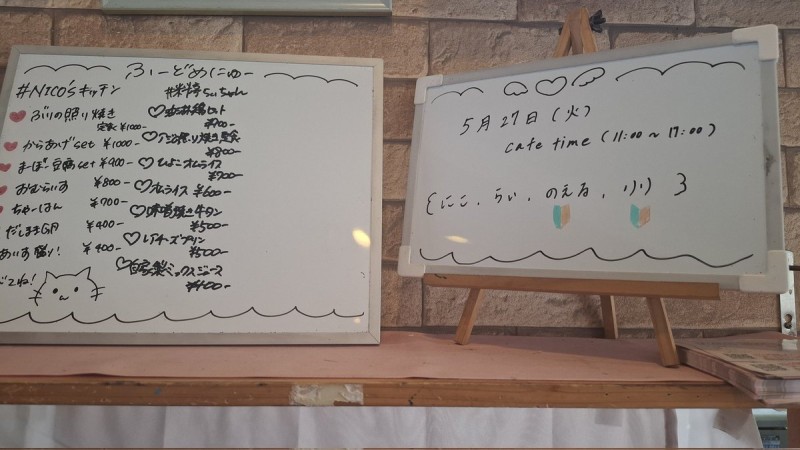 ふーどめにゅー
#NICO'Sキッチン
ぶりの照り焼き
定食 ¥1000-
からあげset ¥1000-
まーぼー豆腐set ¥900-
おむらいす ¥800-
ちゃーはん ¥700-
だしまき ¥400-
あいす盛り! ¥400-
てね!
らいちゃん
セット
¥700-
¥800-
ひよこオムライス
¥700-
オムライス ¥600-
味噌焼き牛タン
¥500-
レアチーズプリン
¥500-
自家製ミックスジュース
¥400-
5月27日(火)
cafe time (11:00~17:00)
{にこ、らい、のえる、小}